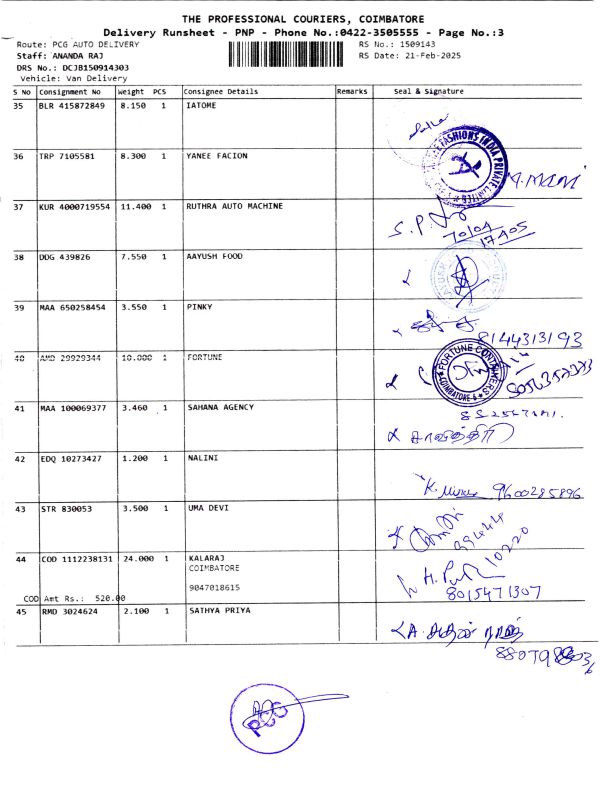 THE PROFESSIONAL COURIERS, COIMBATORE
Delivery Runsheet - PNP - Phone No.:0422-3505555 - Page No.:3
Route: PCG AUTO DELIVERY RS No.: 1509143
Staff: ANANDA RAJ RS Date: 21-Feb-2025
DRS No.: DCJB150914303
Vehicle: Van Delivery
S No Consignment No Weight PCS Consignee Details Remarks Seal & Signature
35 BLR 415872849 8.150 1 IATOME
36 TRP 7105581 8.300 1 YANEE FACION
FASHIONS INDIA PRIVATE LIMITED
A. MANI
37 KUR 4000719554 11.400 1 RUTHRA AUTO MACHINE
S. P.
70104
17405
38 DDG 439826 7.550 1 AAYUSH FOOD
39 MAA 650258454 3.550 1 PINKY
8144313193
40 AMD 29929344 10.000 1 FORTUNE
FORTUNE CONTAINERS
COIMBATORE-6
41 MAA 100069377 3.460 1 SAHANA AGENCY
சாவித்திரி
42 EDQ 10273427 1.200 1 NALINI
9600285896
43 STR 830053 3.500 1 UMA DEVI
99444
10220
44 COD 1112238131 24.000 1 KALARAJ
COIMBATORE
9047018615
H.
8015471307
COD Amt Rs.: 520.00
45 RMD 3024624 2.100 1 SATHYA PRIYA
A.
PCG